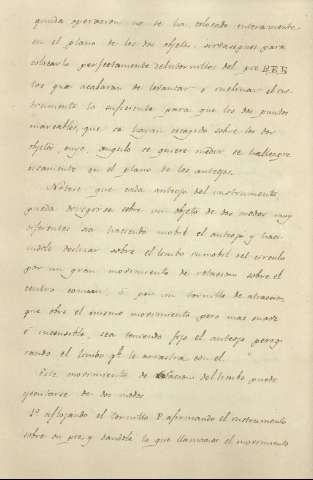 guida operacion no se ha colocado enteramente
en el plano de los dos objetos, sirvanse pues para
colocarlo perfectamente de los tornillos del pie
los que acabaran de levantar ó inclinar el ins-
trumento lo suficiente para que los dos puntos
marcables, que se hayan escogido sobre los dos
objetos, cuyo angulo se quiere medir, se hallen pre
cisamente en el plano de los anteojos.
Nótese que cada anteojo del instrumento
pueda dirigirse sobre un objeto de dos modos muy
diferentes sea haciendo mobil el anteojo y haci-
endole declinar sobre el limbo inmobil del circulo
por un gran movimiento de rotacion sobre el
centro comun, ó por un tornillo de atraccion
que obre el mismo movimiento pero mas suave
é insensible, sea teniendo fijo el anteojo y
rando el limbo qe. le arrastra con el.
Este movimiento de rotacion del limbo puede
gecutarse de dos modos
1º aflojando el tornillo P. afirmando el instrumento
sobre su pie, y dandole lo que llamamos el movimiento